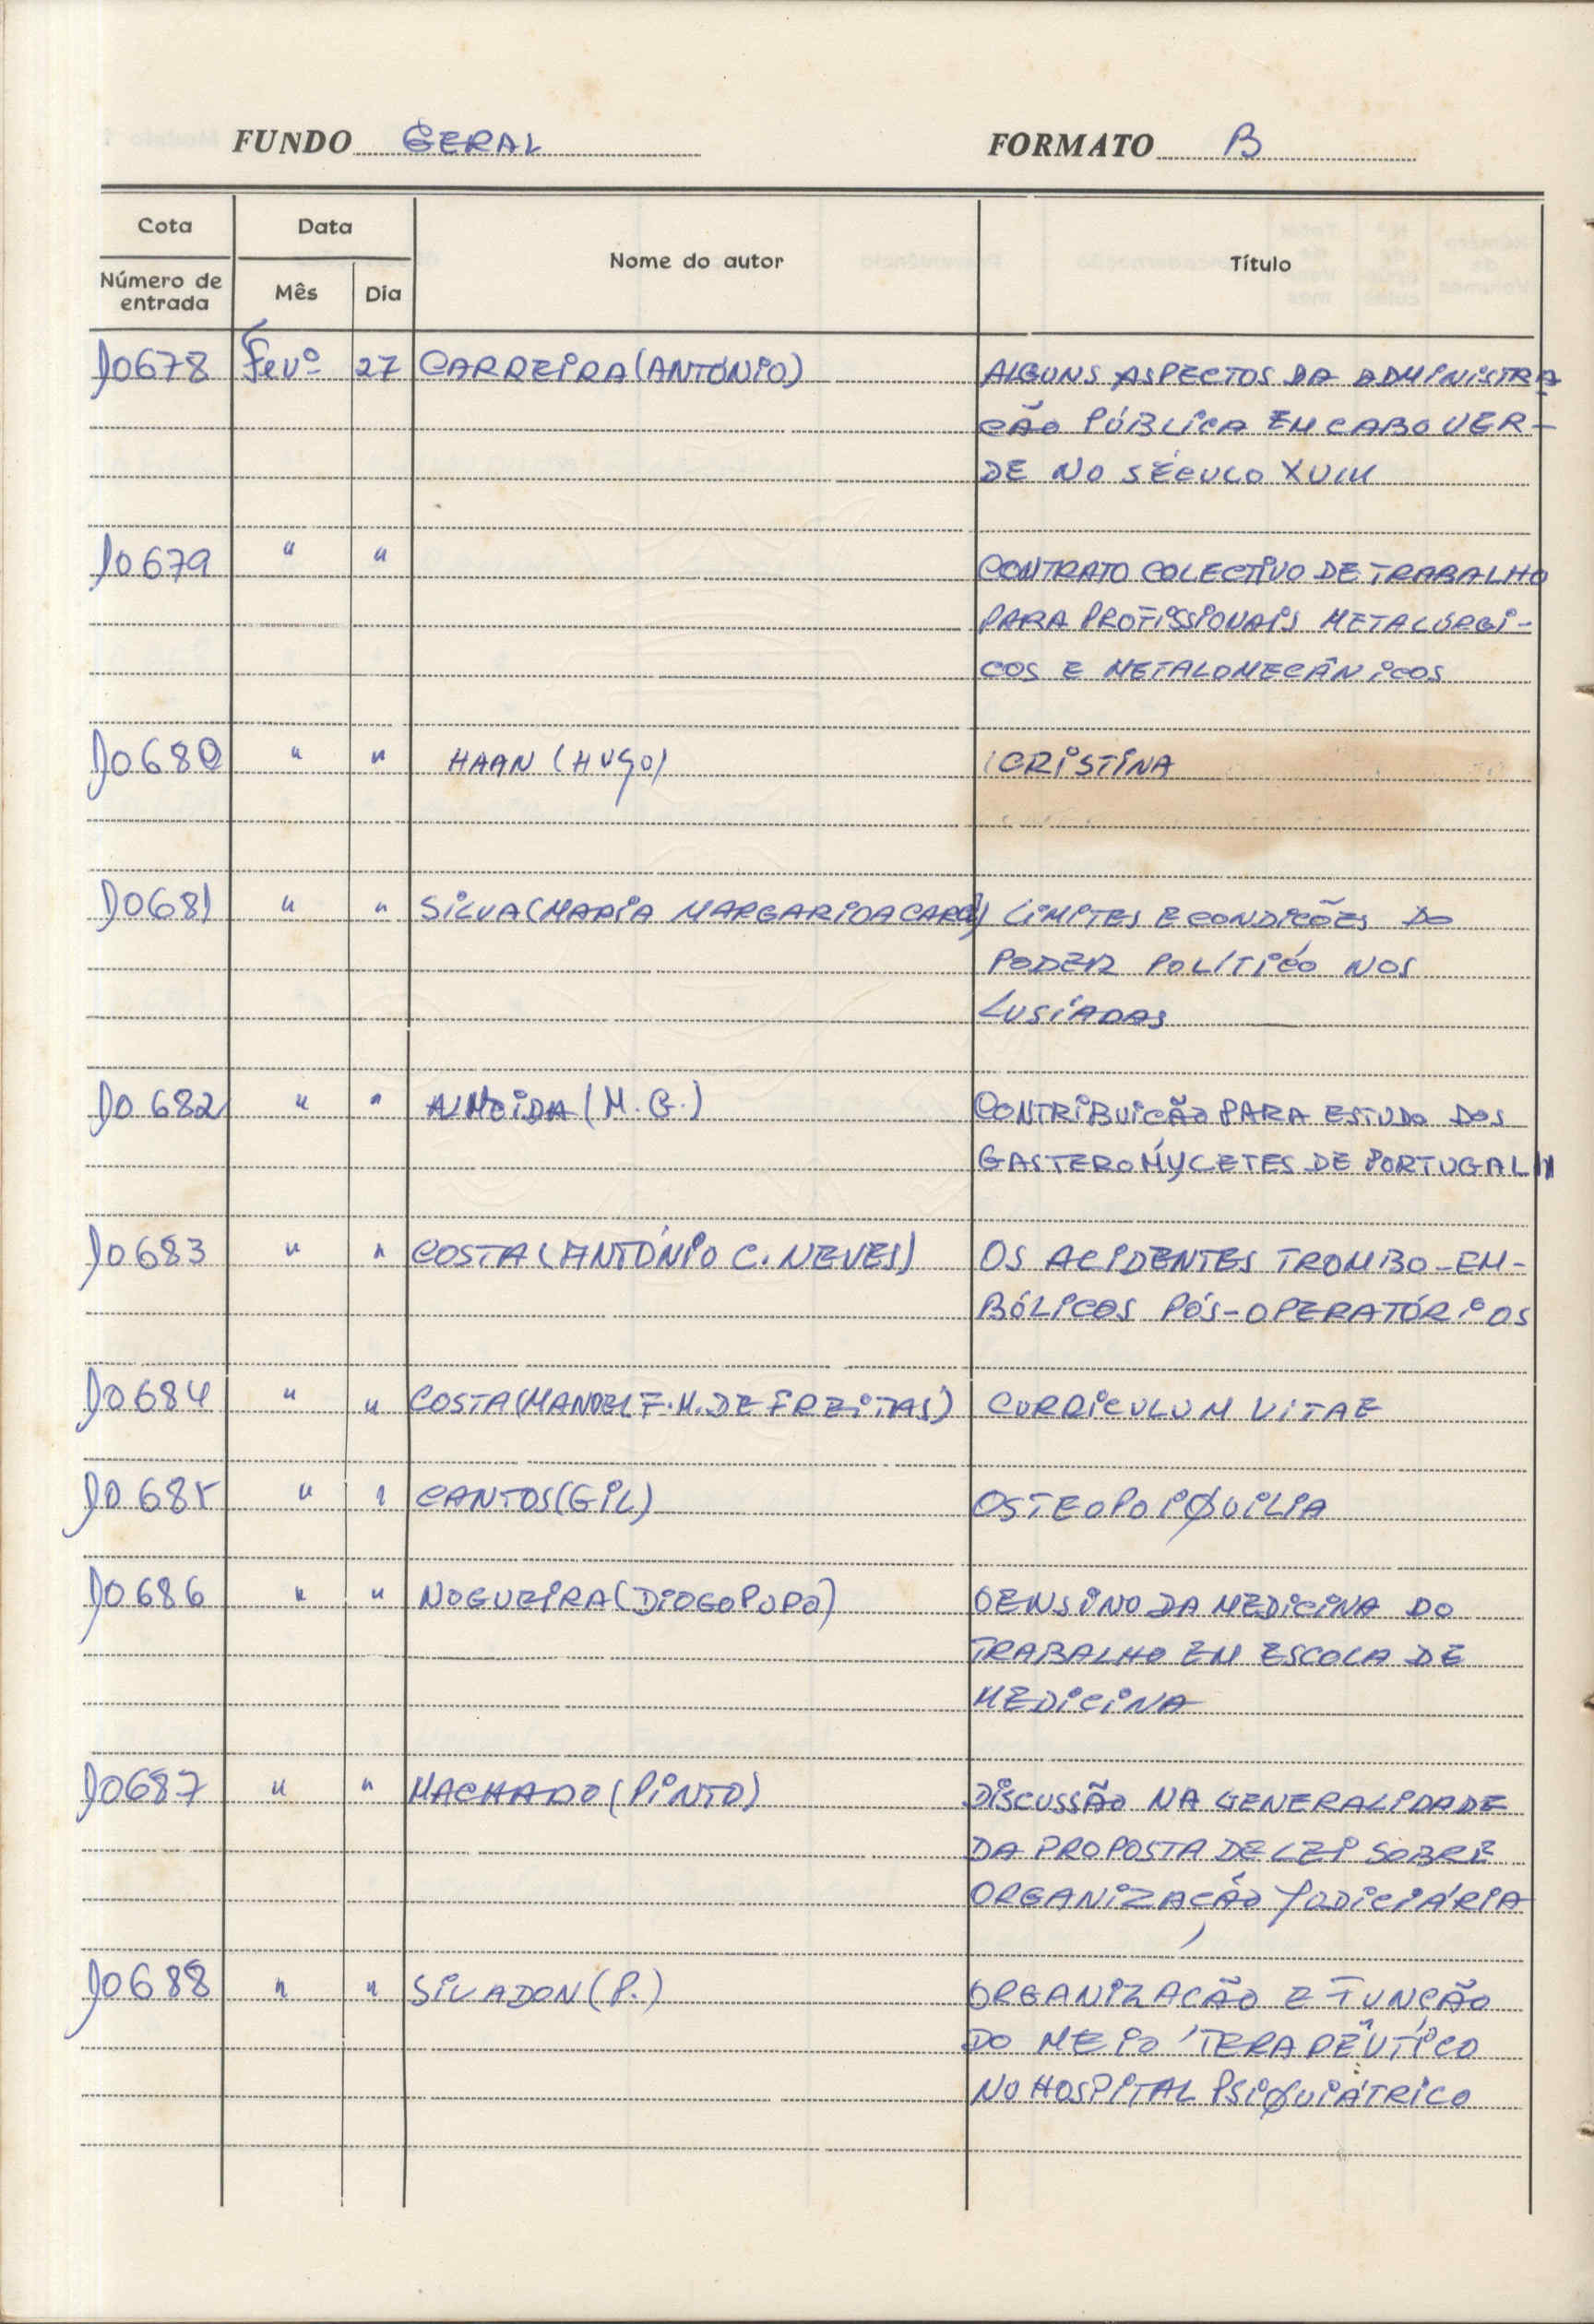 FUNDO GERAL FORMATO B
Cota Data Nome do autor Título
Número de entrada Mês Dia
10678 Fevº 27 CARREIRA (ANTÓNIO) ALGUNS ASPECTOS DA ADMINISTRA
ÇÃO PÚBLICA EM CABO VER-
DE NO SÉCULO XVIII
10679 " " CONTRATO COLECTIVO DE TRABALHO
PARA PROFISSIONAIS METALÚRGI-
COS E METALOMECÂNICOS
10680 " " HAAN (HUGO) CRISTINA
10681 " " SILVA (MARIA MARGARIDA CARD) LIMITES E CONDIÇÕES DO
PODER POLÍTICO NOS
LUSÍADAS
10682 " " ALMEIDA (M. G.) CONTRIBUIÇÃO PARA ESTUDO DOS
GASTEROMYCETES DE PORTUGAL
10683 " " COSTA (ANTÓNIO C. NEVES) OS ACIDENTES TROMBO-EM-
BÓLICOS PÓS-OPERATÓRIOS
10684 " " COSTA (MANUEL F. M. DE FREITAS) CURRICULUM VITAE
10685 " " CANTOS (GIL) OSTEOPOIQUILIA
10686 " " NOGUEIRA (DIOGO PUPO) O ENSINO DA MEDICINA DO
TRABALHO EM ESCOLA DE
MEDICINA
10687 " " MACHADO (PINTO) DISCUSSÃO NA GENERALIDADE
DA PROPOSTA DE LEI SOBRE
ORGANIZAÇÃO JUDICIÁRIA
10688 " " SIVADON (P.) ORGANIZAÇÃO E FUNÇÃO
DO MEIO TERAPÊUTICO
NO HOSPITAL PSIQUIÁTRICO